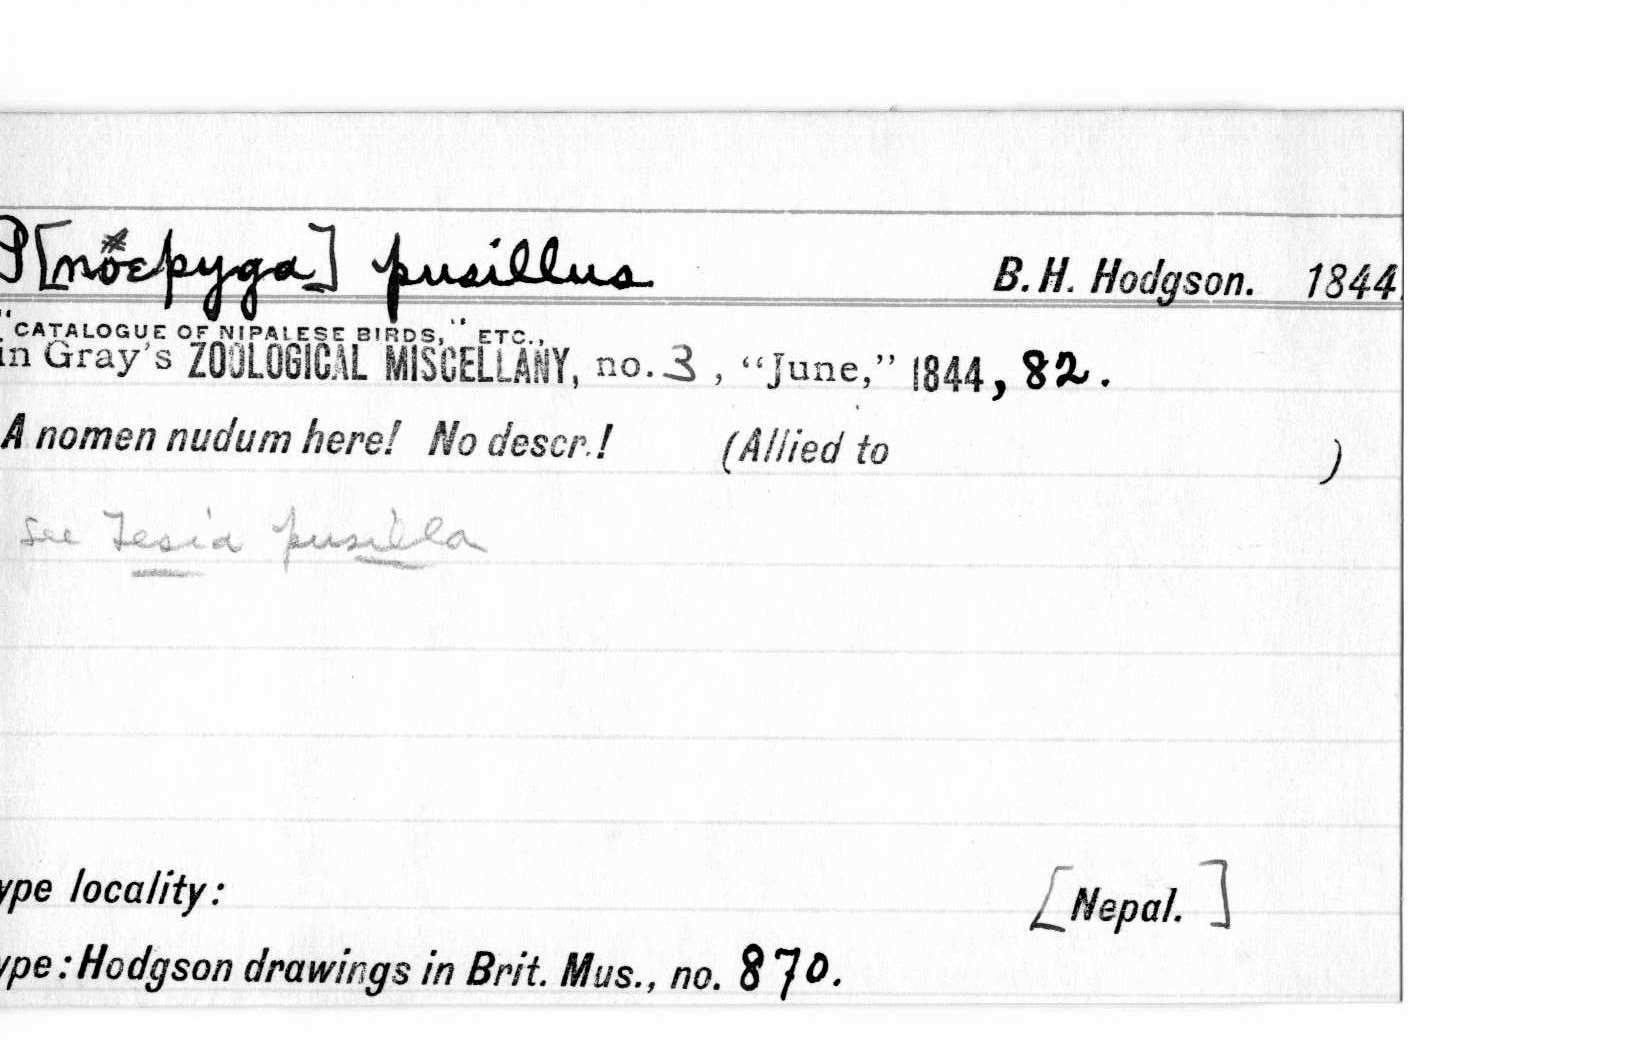 P[nöepyga] pusillus B.H. Hodgson. 1844.
"CATALOGUE OF NIPALESE BIRDS," ETC.,
in Gray's ZOOLOGICAL MISCELLANY, no. 3, "June," 1844, 82.
A nomen nudum here! No descr.! (Allied to )
See Tesia pusilla
ype locality: [Nepal.]
ype: Hodgson drawings in Brit. Mus., no. 870.